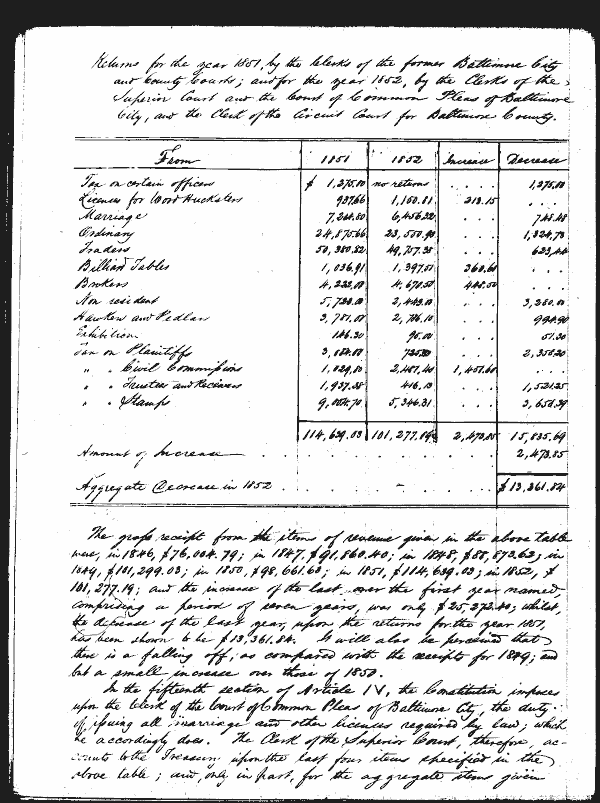 Returns for the year 1851, by the Clerks of the former Baltimore City
and County Courts; and for the year 1852, by the Clerks of the
Superior Court and the Court of Common Pleas of Baltimore
City, and the Clerk of the Circuit Court for Baltimore County.
From 1851 1852 Increase Decrease
Tax on certain officers $ 1,275.00 no returns . . . . 1,275.00
Licenses for Word Hucksters 937.66 1,150.81 213.15 . . .
Marriage 7,201.80 6,456.32 . . . 745.48
Ordinary 24,875.66 23,550.93 . . . 1,324.73
Traders 50,380.82 49,757.38 . . . 623.44
Billiard Tables 1,036.91 1,397.51 360.60 . . .
Brokers 4,222.00 4,670.50 448.50 . . .
Non resident 5,728.00 2,448.00 . . . 3,280.00
Hawkers and Pedlars 3,781.00 2,786.10 . . . 994.90
Exhibition 146.30 95.00 . . . 51.30
Tax on Plaintiffs . . . 2,350.20
" " Civil Commissions 1,029.80 2,481.40 1,451.60 . . .
" " Trustees and Receivers 1,937.38 416.13 . . . 1,521.25
" " Stamps 9,004.70 5,346.31 . . . 3,658.39
114,639.03 101,277.19 2,473.85 15,835.69
Amount of Increase . . . 2,473.85
Aggregate Decrease in 1852 . . . $ 13,361.84
The gross receipt from the items of revenue given in the above table
were, in 1846, $76,004.79; in 1847, $91,860.40; in 1848, $88,873.63; in
1849, $101,299.03; in 1850, $98,661.63; in 1851, $114,639.03; in 1852, $
101,277.19; and the increase of the last over the first year named,
comprising a period of seven years, was only $25,272.40; whilst,
the decrease of the last year, upon the returns for the year 1851,
has been shown to be $13,361.84. It will also be perceived that
there is a falling off, as compared with the receipts for 1849; and
but a small increase over those of 1850.
In the fifteenth section of Article IV, the Constitution imposes
upon the Clerk of the Court of Common Pleas of Baltimore City, the duty
of issuing all marriage and other licenses required by law; which
he accordingly does. The Clerk of the Superior Court, therefore, ac-
counts to the Treasury, upon the last four items specified in the
above table; and, only in part, for the aggregate items given